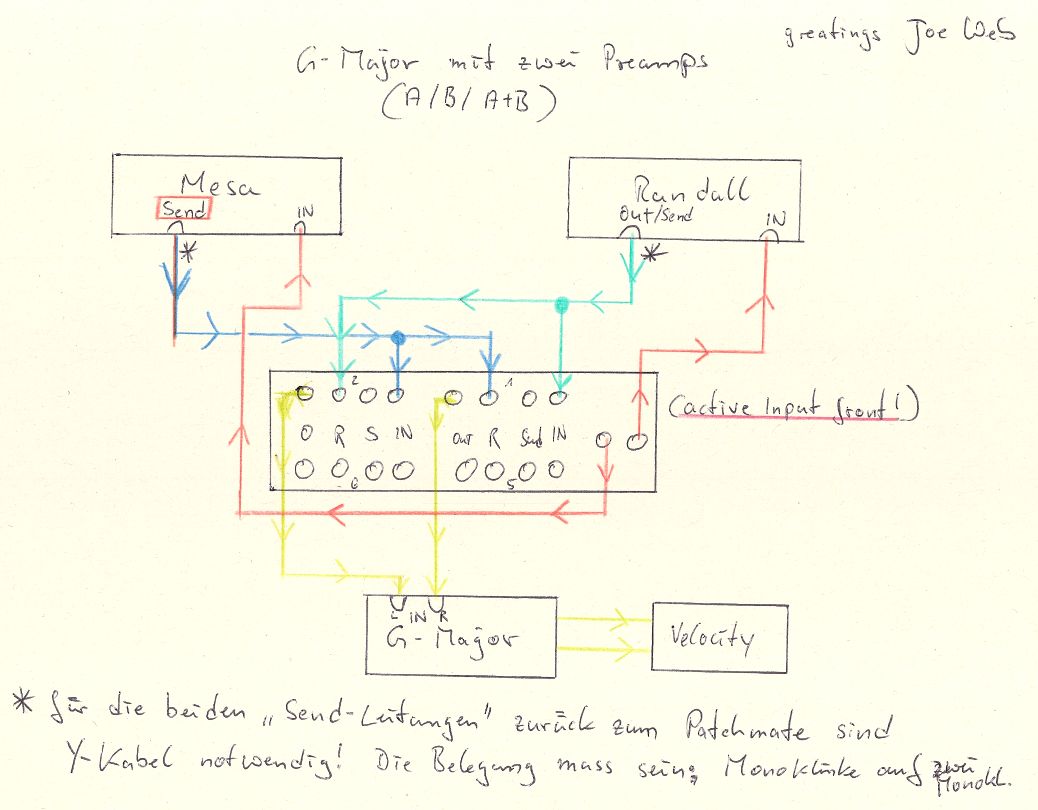 greatings Joe Web
G-Major mit zwei Preamps
(A/B/A+B)
Mesa
Send
IN
Randall
Out/Send
IN
2
1
(active Input front!)
O R S IN
Out R Send IN
6
5
L IN R
G-Major
Velocity
* für die beiden „Send-Leitungen" zurück zum Patchmate sind
Y-Kabel notwendig! Die Belegung muss sein: Monoklinke auf zwei
Monokl.